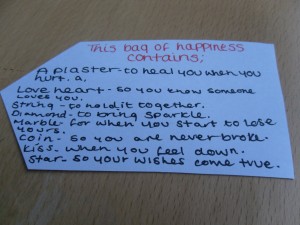 This bag of happiness
contains;
A plaster- to heal you when you
hurt. a.
Love heart - so you know someone
loves you.
String - to hold it together.
Diamond- to bring sparkle.
Marble- for when you start to lose
yours.
Coin- so you are never broke.
Kiss- when you feel down.
Star- so your wishes come true.